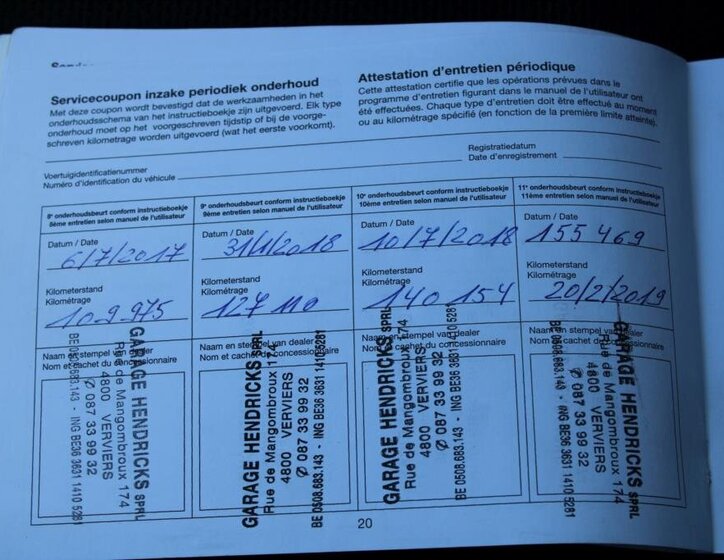 Servicecoupon inzake periodiek onderhoud
Met deze coupon wordt bevestigd dat de werkzaamheden in het
onderhoudsschema van het instructieboekje zijn uitgevoerd. Elk type
onderhoud moet op het voorgeschreven tijdstip of bij de voorge-
schreven kilometrage worden uitgevoerd (wat het eerste voorkomt).
Attestation d'entretien périodique
Cette attestation certifie que les opérations prévues dans le
programme d'entretien figurant dans le manuel de l'utilisateur ont
été effectuées. Chaque type d'entretien doit être effectué au moment
ou au kilométrage spécifié (en fonction de la première limite atteinte).
Voertuigidentificatienummer
Numéro d'identification du véhicule
Registratiedatum
Date d'enregistrement
8e onderhoudsbeurt conform instructieboekje
8ème entretien selon manuel de l'utilisateur
Datum / Date
6/7/2017
Kilometerstand
Kilométrage
109 975
Naam en stempel van dealer
Nom et cachet du concessionnaire
GARAGE HENDRICKS SPRL
Rue de Mangombroux 174
4800 VERVIERS
✆ 087 33 99 32
BE 0508.683.143 - ING BE36 3631 1410 5281
9e onderhoudsbeurt conform instructieboekje
9ème entretien selon manuel de l'utilisateur
Datum / Date
31/1/2018
Kilometerstand
Kilométrage
127 110
Naam en stempel van dealer
Nom et cachet du concessionnaire
GARAGE HENDRICKS SPRL
Rue de Mangombroux 174
4800 VERVIERS
✆ 087 33 99 32
BE 0508.683.143 - ING BE36 3631 1410 5281
10e onderhoudsbeurt conform instructieboekje
10ème entretien selon manuel de l'utilisateur
Datum / Date
10/7/2018
Kilometerstand
Kilométrage
140 154
Naam en stempel van dealer
Nom et cachet du concessionnaire
GARAGE HENDRICKS SPRL
Rue de Mangombroux 174
4800 VERVIERS
✆ 087 33 99 32
BE 0508.683.143 - ING BE36 3631 1410 5281
11e onderhoudsbeurt conform instructieboekje
11ème entretien selon manuel de l'utilisateur
Datum / Date
155 469
Kilometerstand
Kilométrage
20/2/2019
Naam en stempel van dealer
Nom et cachet du concessionnaire
GARAGE HENDRICKS SPRL
Rue de Mangombroux 174
4800 VERVIERS
✆ 087 33 99 32
BE 0508.683.143 - ING BE36 3631 1410 5281
20